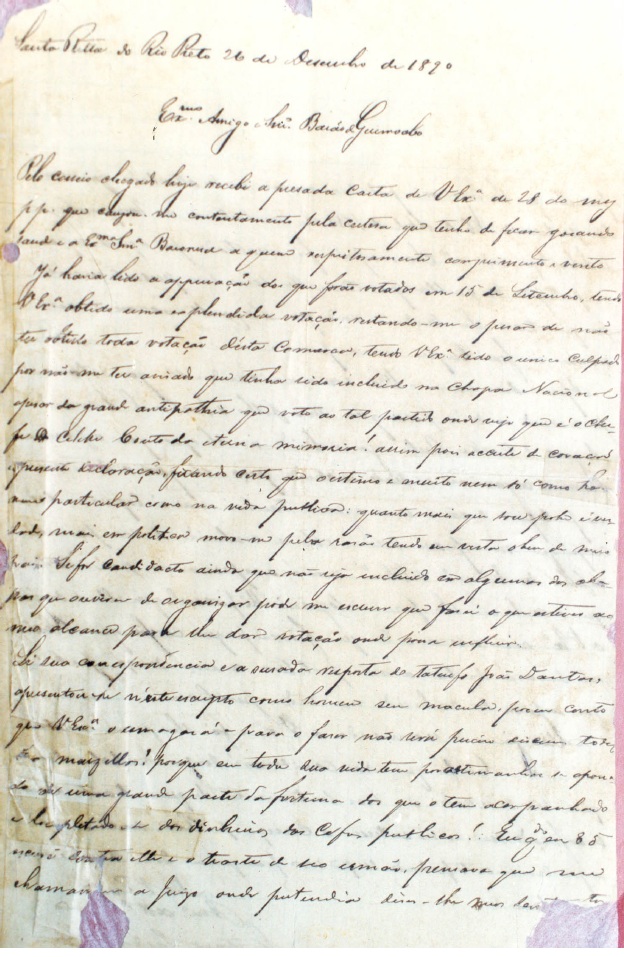 Santa Ritta do Rio Preto 26 de Desembro de 1890
Exmo Amigo e Snr. Barão de Geremoabo
Pelo correio chegado hoje recebi a presada Carta de V Exª de 28 do mez
p.p. que causou-me contentamento pela certesa que tenho de ficar gosando
saude e a Exma Snrª Baronesa a quem respeitosamente comprimento e visito
Já havia lido a appuração dos que forão votados em 15 de Setembro, tendo
V Exª obtido uma esplendida votação, restando-me o pesar de não
ter obtido toda votação désta Comarca, tendo V Exª sido o unico culpado
por não me ter avisado que tinha sido incluido na Chapa Nacional
apesar da grande antipathia que voto ao tal partido onde vejo que é o Che-
fe Couto da eterna memoria! assim pois acceite de coração
presente declaração, ficando certo que o estimo e muito nem só como ho-
mem particular como na vida publica: quanto mais que sou pobre é
mais em politica movo-me pela rasão tendo em vista o bem de meu
Si for candidacto ainda que não seja incluido em algumas das cha-
pas que ouverem de organizar pode me escrever que farei o que estiver ao
meu alcance para lhe dar votação onde possa influir.
Li sua correspondencia e a ousada resposta do João Dantas,
apresentou-se n'este escripto como homem sem macula, porem conto
que V Exª o esmagará e para o faser não será preciso
porque em toda sua vida tem
do de uma grande parte da fortuna dos que o tem acompanhado
e dos dinheiros dos Cofres publicos! Eu qdo em 85
contra elle e o traste de seo irmão, pensava que me
chamassem a Juizo onde pretendia diser-lhe